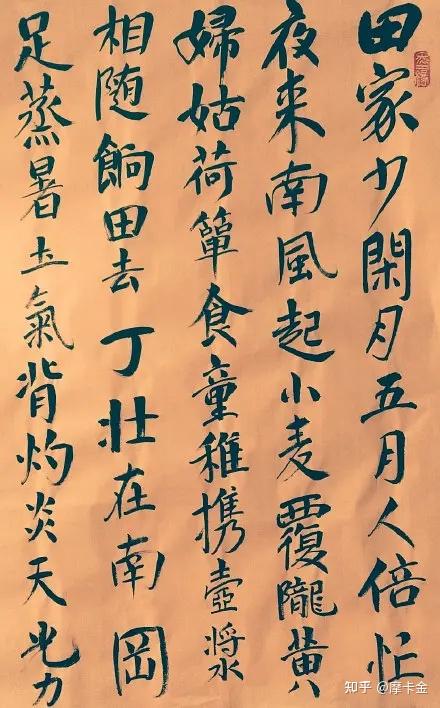 田家少閑月五月人倍忙
夜来南風起小麦覆隴黄
婦姑荷簞食童稚携壺漿
相随餉田去丁壮在南岡
足蒸暑土氣背灼炎天光力
知乎 @摩卡金